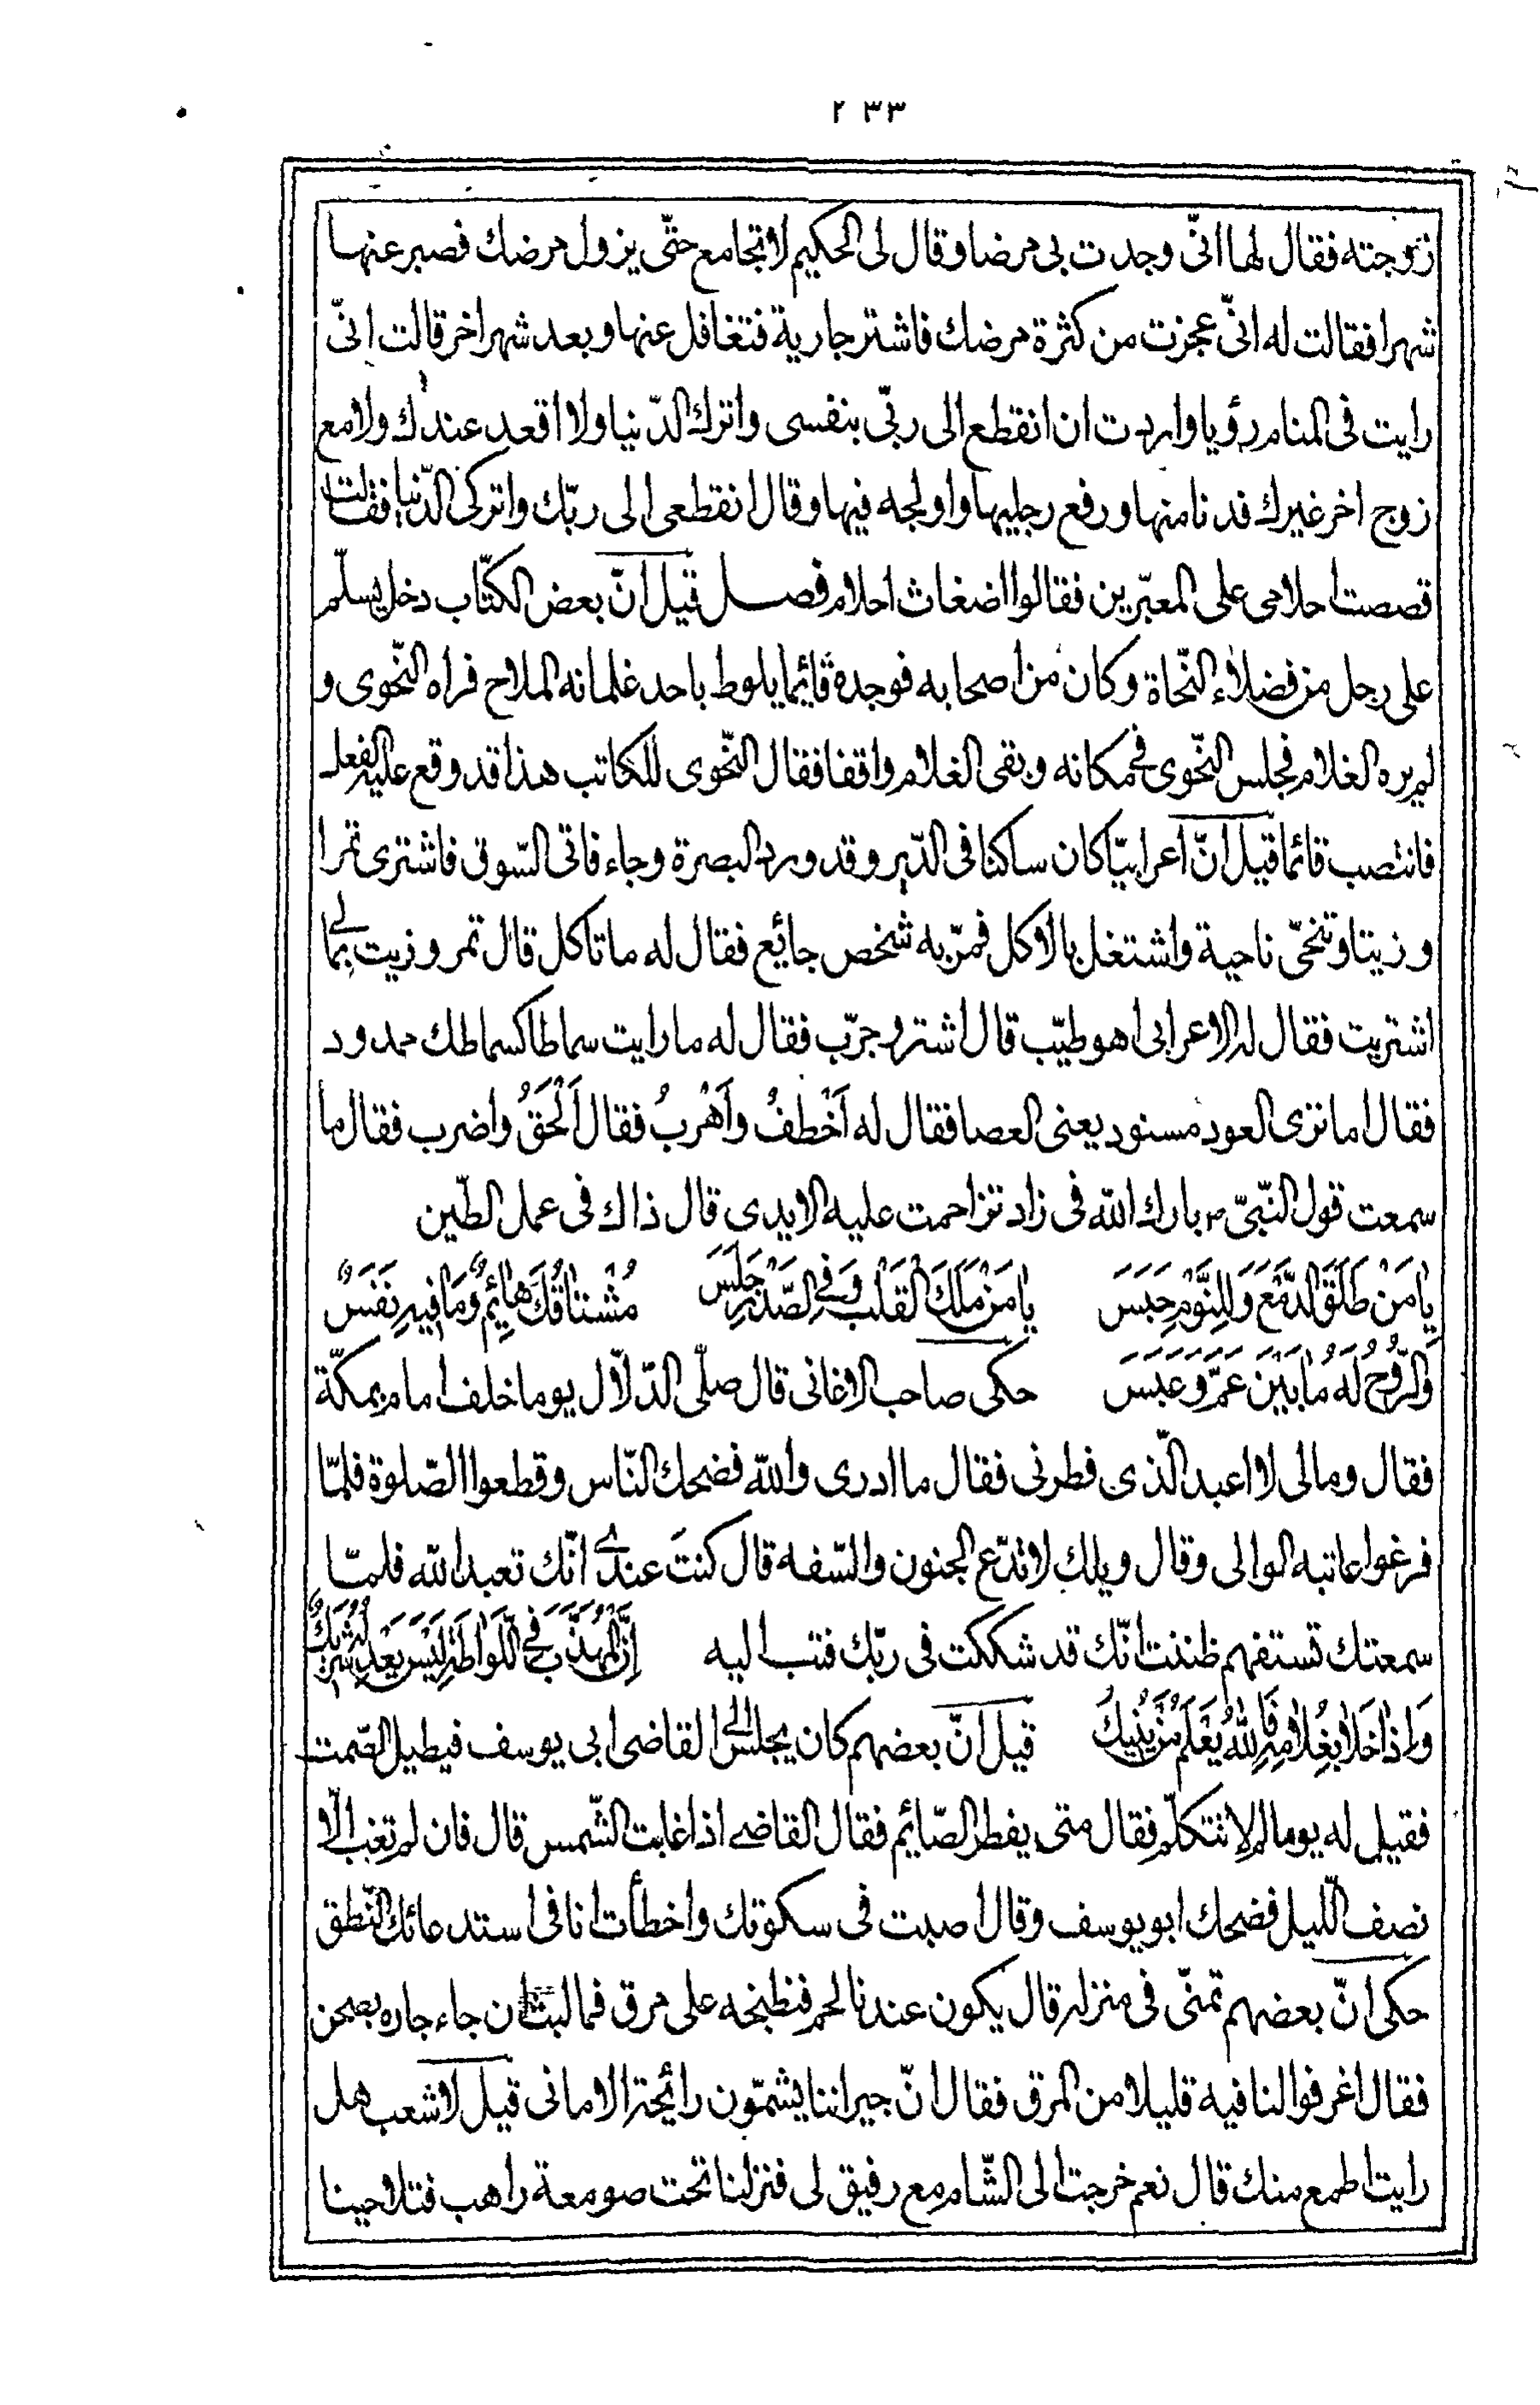 ٢٣٣
زوجته فقال لها انّى وجدت بى مرضا وقال لى الحكيم لا تجامع حتّى يزول مرضك فصبر عنها
شهرا فقالت له انّى عجزت من كثرة مرضك فاشتر جارية فتغافل عنها وبعد شهر اخر قالت انّى
رايت فى المنام رؤيا واردت ان انقطع الى ربّى بنفسى واترك الدّنيا ولا اقعد عندك ولا مع
زوج اخر غيرك فدنا منها ورفع رجليها واولجه فيها وقال انقطعى الى ربّك واتركى الدّنيا فقالت
قصصت احلامى على المعبّرين فقالوا اضغاث احلام فصل قيل انّ بعض الكتّاب دخل يسلّم
على رجل من فضلاء النّحاة وكان من اصحابه فوجده قائما يلوط باحد غلمانه الملاح فراه النّحوى و
لم يره الغلام فجلس النّحوى فى مكانه وبقى الغلام واقفا فقال النّحوى للكاتب هذا قد وقع عليه الفعل
فانتصب قائما قيل انّ اعرابيّا كان ساكنا فى الدّير وقد ورد البصرة وجاء فاتى السّوق فاشترى تمرا
وزيتا وتنحّى ناحية واشتغل بالاكل فمرّ به شخص جائع فقال له ما تاكل قال تمر وزيت لى بما
اشتريت فقال له الاعرابى اهو طيّب قال اشتر وجرّب فقال له ما رايت سماطا كسماطك ممدود
فقال اما ترى العود مسنود يعنى العصا فقال له اَخْطفُ واَهْربُ فقال اَلْحَقُ واضرب فقال ما
سمعت قول النّبىّ ص بارك الله فى زاد تزاحمت عليه الايدى قال ذاك فى عمل الطّين
يا مَنْ طَلَقَ الدَّمْعَ وَلِلنَّوْمِ حَبَسَ يا مَنْ مَلَكَ القَلْبَ وَفِى الصَّدْرِ جَلَسَ مُشْتاقُكَ هائِمٌ وَما فيهِ نَفَسٌ
وَالرُّوحُ لَهُ ما بَيْنَ عَمَّ وَعَبَسَ حكى صاحب الاغانى قال صلّى الدّلاّل يوما خلف امام بمكّة
فقال ومالى لا اعبد الّذى فطرنى فقال ما ادرى والله فضحك النّاس وقطعوا الصّلوة فلمّا
فرغوا عاتبه الوالى وقال ويلك لا تدّع الجنون والسّفه قال كنتَ عندى انّك تعبد الله فلمّا
سمعتك تستفهم ظننت انّك قد شككت فى ربّك فتب اليه اِنَّ المُهَذَّبَ فِى اللِّواطَةِ لَيْسَ يَعْدِلُهُ شَرِيكُ
وَاِذا خَلا بِغُلامِهِ فَاللهُ يَعْلَمُ مَنْ يَنِيكُ قيل انّ بعضهم كان يجلس الى القاضى ابى يوسف فيطيل الصّمت
فقيل له يوما لم لا تتكلّم فقال متى يفطر الصّائم فقال القاضى اذا غابت الشّمس قال فان لم تغب الى
نصف اللّيل فضحك ابو يوسف وقال اصبت فى سكوتك واخطأت انا فى استدعائك النّطق
حكى انّ بعضهم تمنّى فى منزله قال يكون عندنا لحم فنطبخه على مرق فما لبث ان جاء جاره بصحن
فقال اغرفوا لنا فيه قليلا من المرق فقال انّ جيراننا يشمّون رائحة الامانى قيل لاشعب هل
رايت اطمع منك قال نعم خرجت الى الشّام مع رفيق لى فنزلنا تحت صومعة راهب فتلاحينا